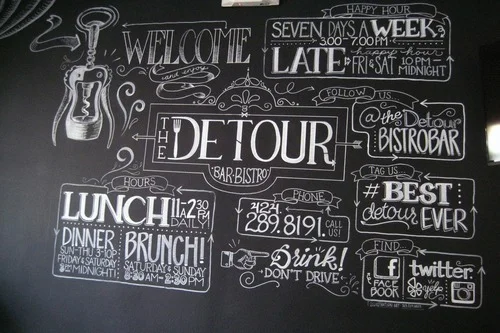 WELCOME
and enjoy
HAPPY HOUR
SEVEN DAYS A WEEK
3:00-7:00PM
LATE happy hour
FRI & SAT 10PM -
MIDNIGHT
THE DETOUR
BAR·BISTRO
FOLLOW US
@the Detour
BISTROBAR
TAG US
#BEST
detour EVER
HOURS
LUNCH 11A 2:30PM
DAILY
DINNER
SUN-THU 3-10P
FRIDAY & SATURDAY
MIDNIGHT!
BRUNCH!
SATURDAY & SUNDAY
8:30AM-2:30PM
PHONE
424.
289.8191. CALL US!
Drink!
DON'T DRIVE
FIND
f FACE BOOK
twitter
yelp